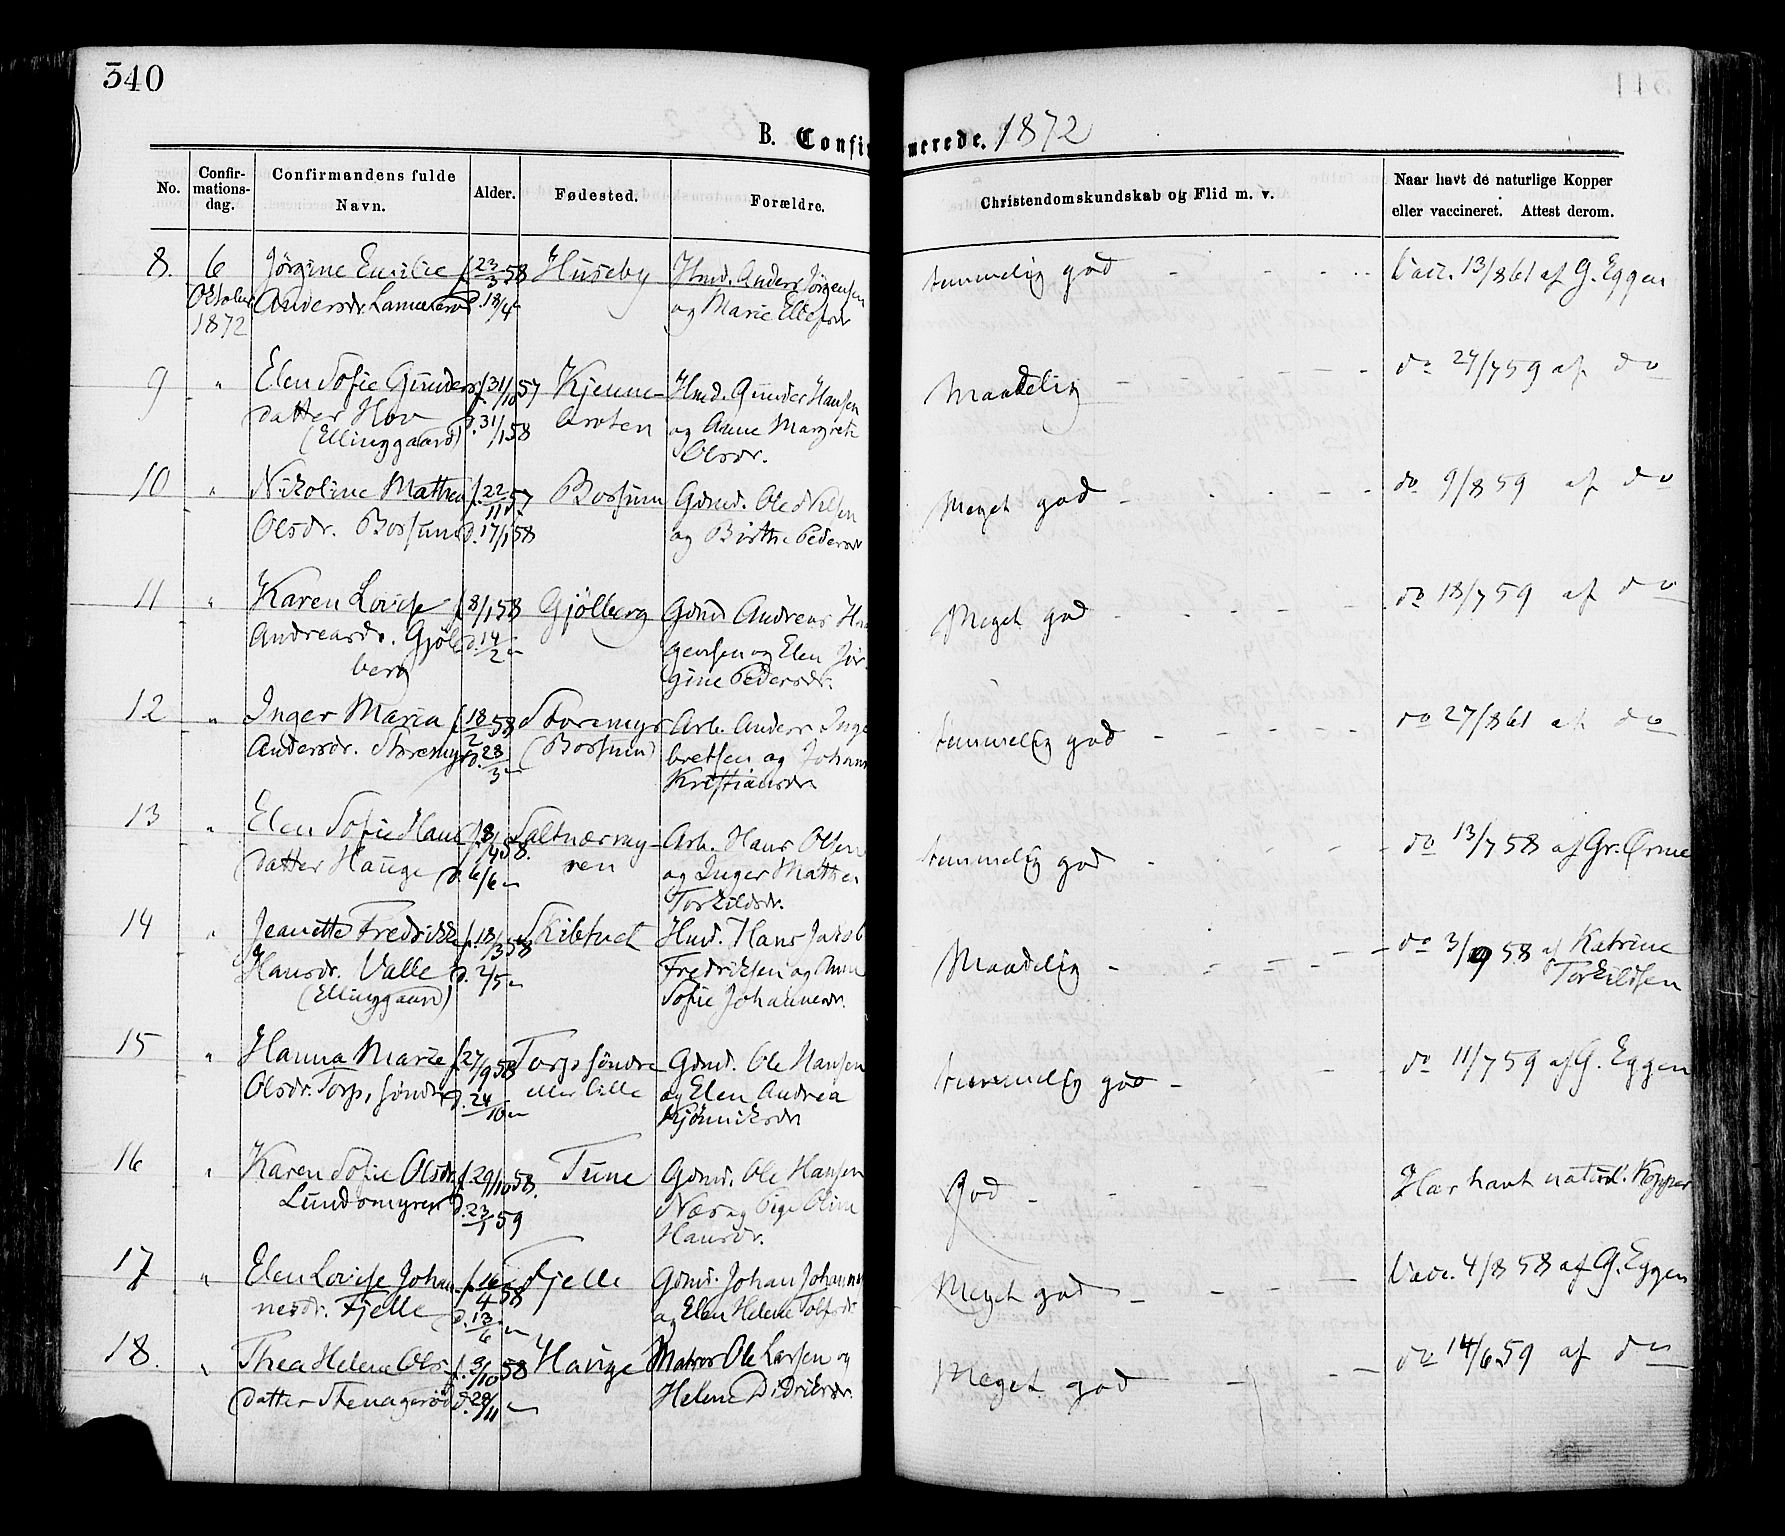 340
B. Confirmerede. 1872
No.
Confir-
mations-
dag.
Confirmandens fulde
Navn.
Alder.
Fødested.
Forældre.
Christendomskundskab og Flid m. v.
Naar havt de naturlige Kopper
eller vaccineret. Attest derom.
8. 6 Jørgine Emilie f. 23/3 58 Huseby Hmd. Anders Jørgensen temmelig god Vacc. 13/8 61 af G. Eggen
Oktober Andersdr. d. 18/4 og Marie Ellefsdr
1872
9 " Elen Sofie Gunders f. 31/10 57 Kjenne- Hmd. Gunder Hansen Maadelig do 27/7 59 af do
datter Hov d. 31/1 58 broten og Anne Margrete
(Ellinggaard) Olsdr.
10 " Nikoline Mathea f. 22/11 57 Bossum Gdmd. Ole Nilsen Meget god do 9/8 59 af do
Olsdr. Bossum d. 17/1 58 og Birthe Pedersdr
11 " Karen Lovise f. 8/1 58 Gjølberg Gdmd Andreas Haa Meget god do 18/7 59 af do
Andreasdr. Gjøl d. 14/2 " gensen og Elen Jør-
berg gine Pedersdr.
12 " Inger Maria f. 18/2 58 Storemyr Arb. Anders Inge temmelig god do 27/8 61 af do
Andersdr. Storemyr d. 28/3 " (Bossum) bretsen og Johanne
Kristiansdr
13 " Elen Sofie Hans f. 8/4 58. Saltnærmy- Arb. Hans Olsen temmelig god do 13/7 58 af Gr. Ørme
datter Hauge d. 6/6 " ren og Inger Mathea
Torkildsdr.
14 " Jeanette Fredrikke f. 18/3 58 Skibtvet Hmd. Hans Jakob Maadelig do 3/9 58 af Katrine
Hansdr. Valle d. 2/5 " Fredriksen og Anne Torkildsen
(Ellinggaard) Sofie Johannesdr.
15 " Hanna Marie f. 27/9 58 Torp søndre Gdmd. Ole Hansen temmelig god do 11/7 59 af G. Eggen
Olsdr. Torp, søndre d. 24/10 " eller lille og Elen Andrea
Kjønniksdr
16 " Karen Sofie Olsdr f. 29/10 58. Tune Gdmd. Ole Hansen God Har havt naturl. Kopper
Lundsmyren d. 23/1 59 Næs og Pige Oline
Hansdr.
17 " Elen Lovise Johan f. 16/4 58 Fjelle Gdmd. Johan Johannes Meget god Vacc. 4/8 58 af G. Eggen
nesdr. Fjelle d. 13/6 " og Elen Helene Tolfsdr
18. " Thea Helene Ols f. 3/10 58 Hauge Matros Ole Larsen og Meget god do 14/6 59 af do
datter Stenagerød d. 28/11 " Helene Didriksdr.